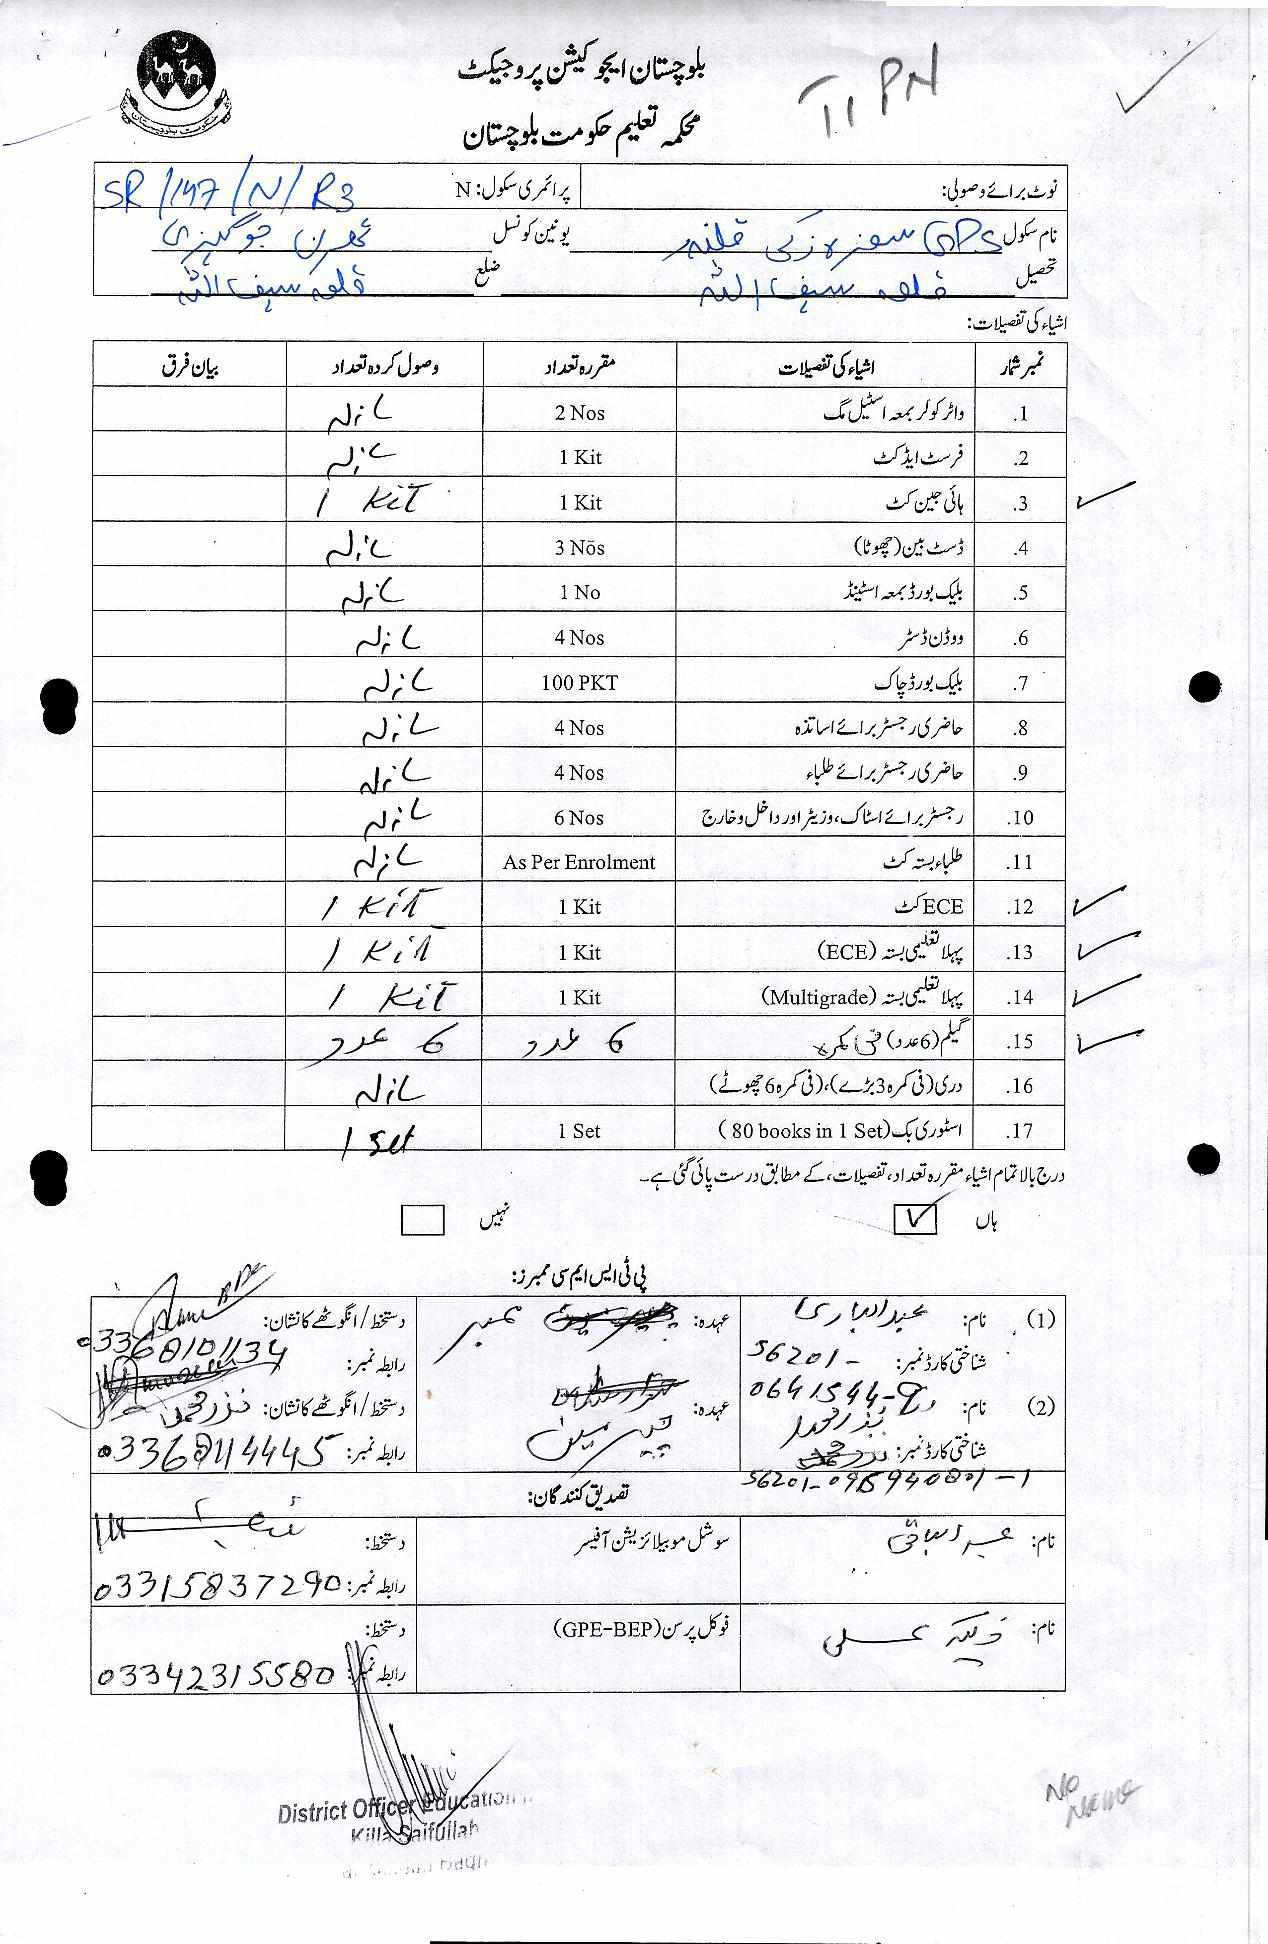 بلوچستان ایجوکیشن پروجیکٹ
TI PN
محکمہ تعلیم حکومت بلوچستان
نوٹ برائے وصولی: پرائمری سکول: N SR/147/N/R3
نام سکول GPS یونین کونسل جوگیزی
تحصیل قلعہ سیف اللہ ضلع قلعہ سیف اللہ
اشیاء کی تفصیلات:
نمبر شمار اشیاء کی تفصیلات مقررہ تعداد وصول کردہ تعداد بیان فرق
1. واٹر کولر بمعہ اسٹیل مگ 2 Nos
2. فرسٹ ایڈ کٹ 1 Kit
3. ہائی جین کٹ 1 Kit 1 Kit
4. ڈسٹ بین (چھوٹا) 3 Nos
5. بلیک بورڈ بمعہ اسٹینڈ 1 No
6. ووڈن ڈسٹر 4 Nos
7. بلیک بورڈ چاک 100 PKT
8. حاضری رجسٹر برائے اساتذہ 4 Nos
9. حاضری رجسٹر برائے طلباء 4 Nos
10. رجسٹر برائے اسٹاک، وزیٹر اور داخل و خارج 6 Nos
11. طلباء بستہ کٹ As Per Enrolment
12. ECE کٹ 1 Kit 1 Kit
13. پہلا تعلیمی بستہ (ECE) 1 Kit 1 Kit
14. پہلا تعلیمی بستہ (Multigrade) 1 Kit 1 Kit
15. گیلم (6 عدد) فی کمرہ 6 عدد 6 عدد
16. دری (فی کمرہ 3 بڑے)، (فی کمرہ 6 چھوٹے)
17. اسٹوری بک (80 books in 1 Set) 1 Set 1 Set
درج بالا تمام اشیاء مقررہ تعداد، تفصیلات، کے مطابق درست پائی گئی ہے۔
ہاں ✓ نہیں
پی ٹی ایس ایم سی ممبرز:
(1) نام: عبدالباری عہدہ: ممبر دستخط/انگوٹھے کا نشان:
شناختی کارڈ نمبر: 56201- رابطہ نمبر: 03368101134
0641544-9
(2) نام: نذر محمد عہدہ: چیئرمین دستخط/انگوٹھے کا نشان: نذر محمد
شناختی کارڈ نمبر: رابطہ نمبر: 03368114445
تصدیق کنندگان:
نام: عبدالباقی سوشل موبیلائزیشن آفیسر دستخط:
رابطہ نمبر: 03315837290
نام: فوکل پرسن (GPE-BEP) دستخط:
رابطہ نمبر: 03342315580
District Officer Education
Killa Saifullah
No Name